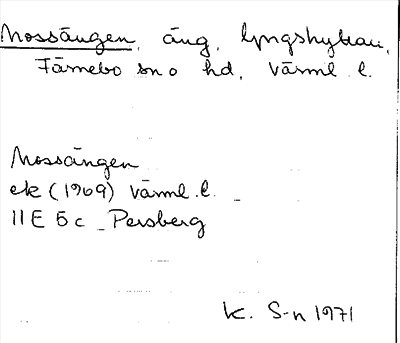 Mossängen, äng, Lyngshyttan,
Färnebo sn o hd, Värml. l.
Mossängen
ek (1969) Värml. l.
11E 5c Persberg
K. S-n 1971